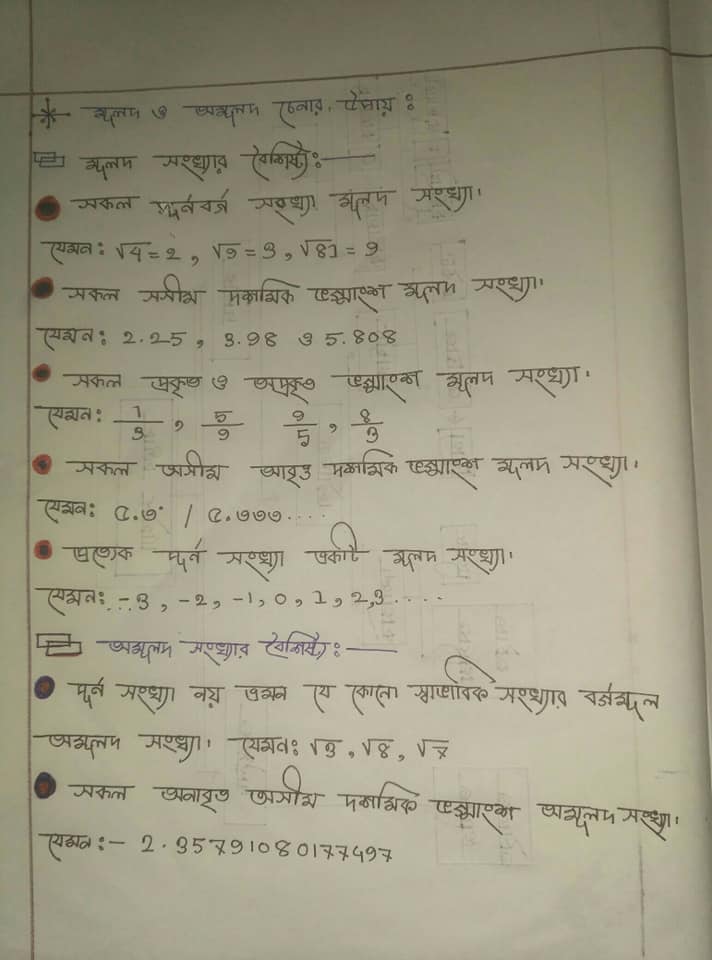 মূলদ ও অমূলদ চেনার উপায় :
মূলদ সংখ্যার বৈশিষ্ট্য :—
সকল পূর্নবর্গ সংখ্যা মূলদ সংখ্যা।
যেমন: √4 = 2 , √9 = 3 , √81 = 9
সকল সসীম দশমিক ভগ্নাংশ মূলদ সংখ্যা।
যেমন: 2.25 , 3.98 ও 5.808
সকল প্রকৃত ও অপ্রকৃত ভগ্নাংশ মূলদ সংখ্যা।
যেমন: 1/3 , 5/9 9/5 , 8/3
সকল অসীম আবৃত দশমিক ভগ্নাংশ মূলদ সংখ্যা।
যেমন: ৫.৩̇ / ৫.৩৩৩....
প্রত্যেক পূর্ন সংখ্যা একটি মূলদ সংখ্যা।
যেমন: ...-3 , -2 , -1 , 0 , 1 , 2,3 ....
অমূলদ সংখ্যার বৈশিষ্ট্য :—
পূর্ন সংখ্যা নয় এমন যে কোনো স্বাভাবিক সংখ্যার বর্গমূল
অমূলদ সংখ্যা। যেমন: √3 , √8 , √7
সকল অনাবৃত অসীম দশমিক ভগ্নাংশ অমূলদ সংখ্যা।
যেমন:- 2.35791080177497